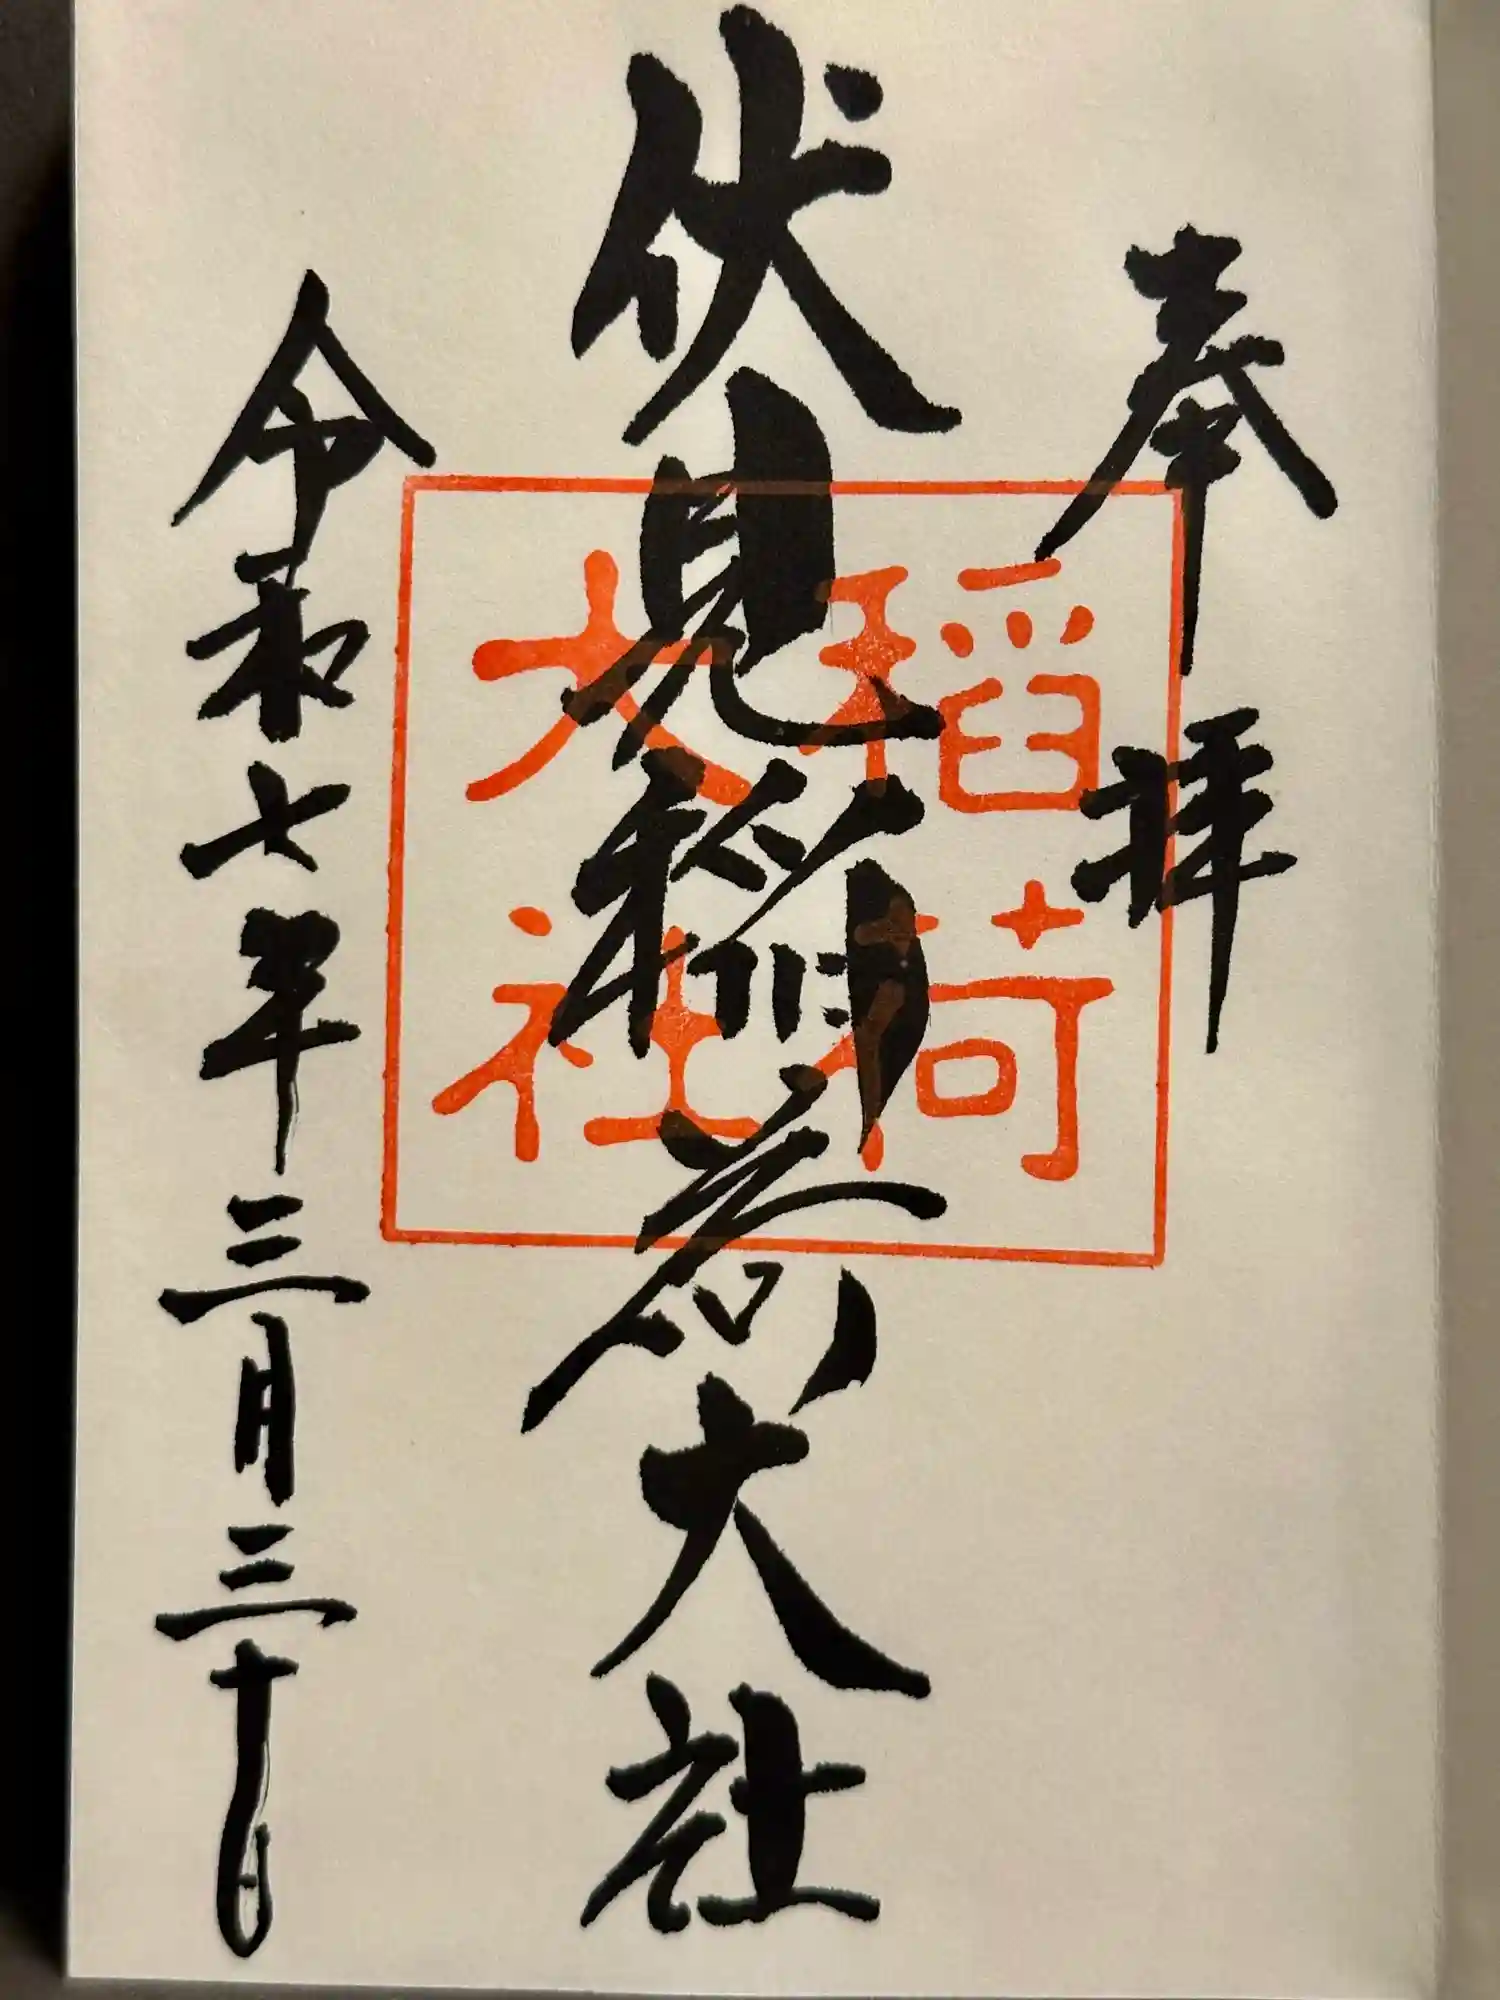 奉拝
伏見稲荷大社
稲荷
大社
令和七年三月三十日